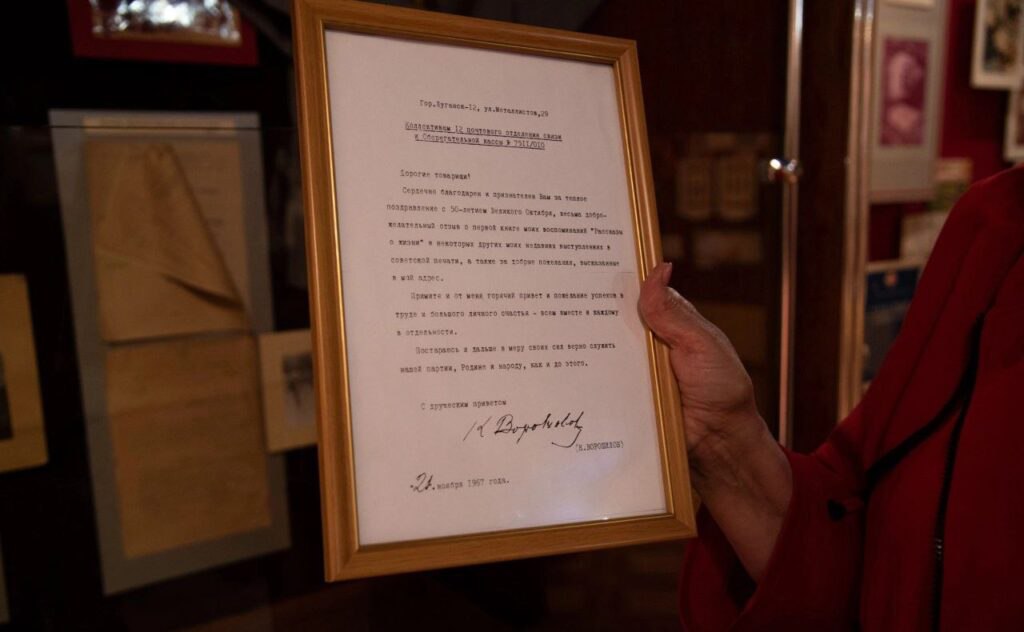 Гор.Луганск-12, ул.Металлистов,29
Коллективам 12 почтового отделения связи
и Сберегательной кассы № 7511/010
Дорогие товарищи!
Сердечно благодарен и признателен Вам за теплое
поздравление с 50-летием Великого Октября, весьма добро-
желательный отзыв о первой книге моих воспоминаний "Рассказы
о жизни" и некоторых других моих недавних выступлениях в
советской печати, а также за добрые пожелания, высказанные
в мой адрес.
Примите и от меня горячий привет и пожелание успехов в
труде и большого личного счастья - всем вместе и каждому
в отдельности.
Постараюсь и дальше в меру своих сил верно служить
нашей партии, Родине и народу, как и до этого.
С дружеским приветом
К Ворошилов
(К.ВОРОШИЛОВ)
ноября 1967 года.